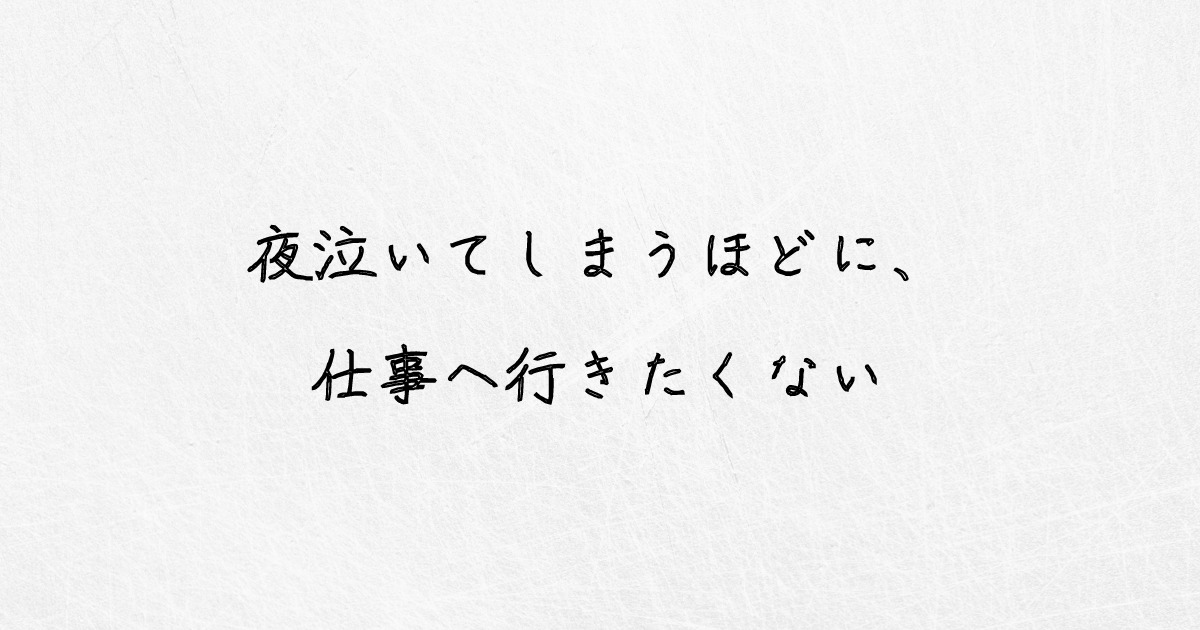 夜泣いてしまうほどに、
仕事へ行きたくない